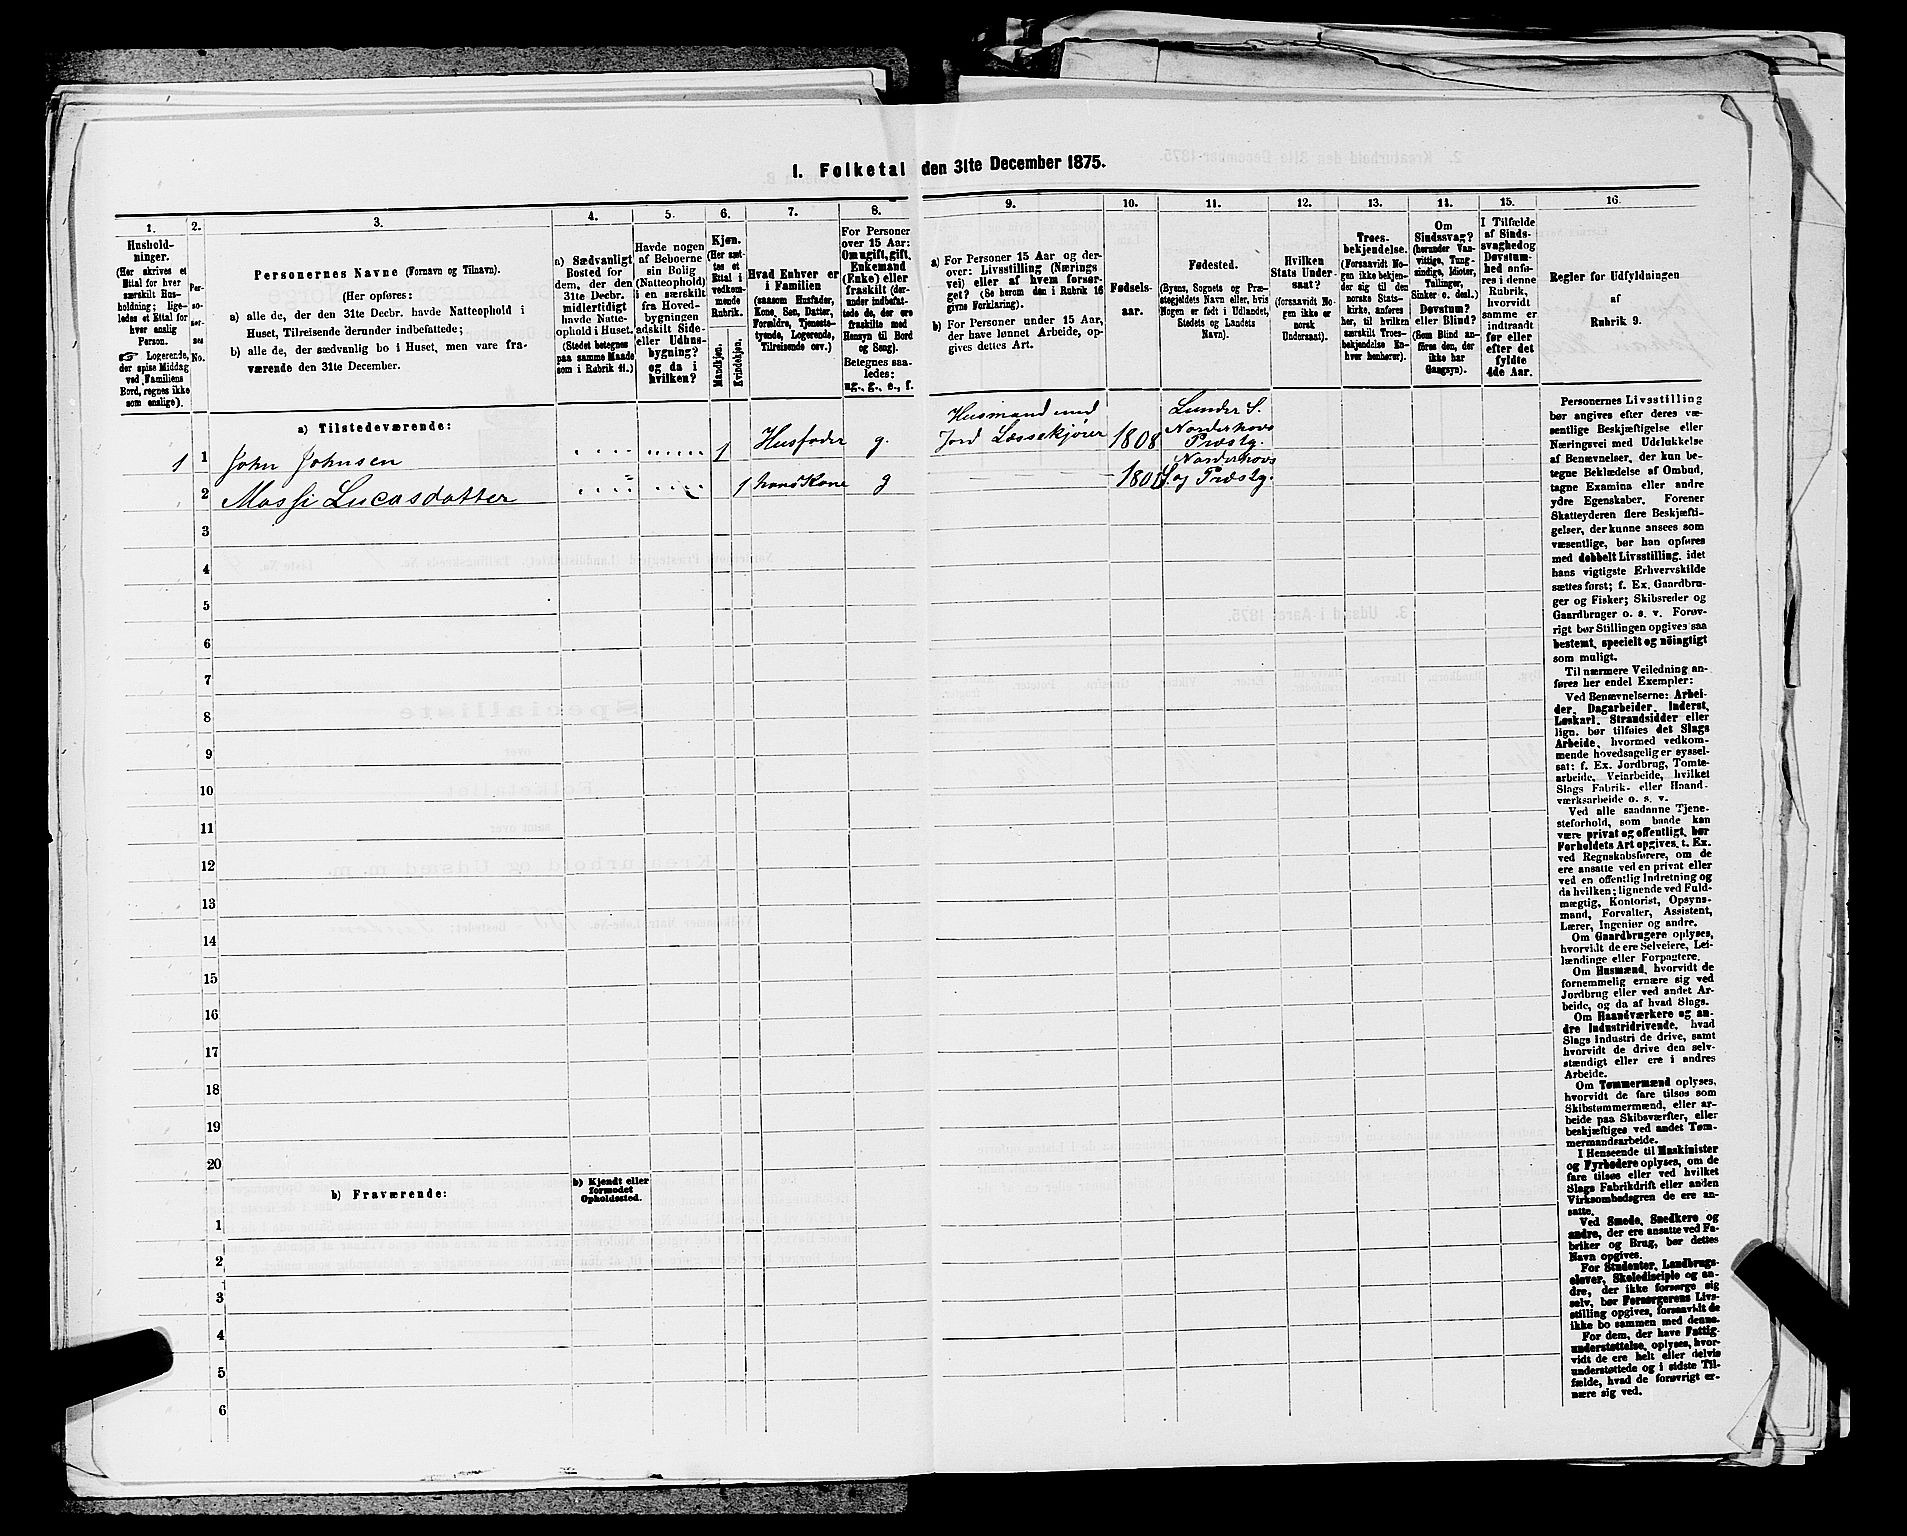 1. Folketal den 31te December 1875.
1.
Hushold-
ninger.
(Her skrives et
Ettal for hver
særskilt Hus-
holdning; lige-
ledes et Ettal for
hver enslig
Person.
☞ Logerende,
der spise Middag
ved Familiens
Bord, regnes ikke
som enslige).
2.
Per-
so-
ner-
nes
No.
3.
Personernes Navne (Fornavn og Tilnavn).
(Her opføres:
a) alle de, der den 31te Decbr. havde Natteophold i
Huset, Tilreisende derunder indbefattede;
b) alle de, der sædvanlig bo i Huset, men vare fra-
værende den 31te December.
4.
a) Sædvanligt
Bosted for
dem, der den
31te Decbr.
midlertidigt
havde Natte-
ophold i Huset.
(Stedet betegnes
paa samme Maade
som i Rubrik 11.)
5.
Havde nogen
af Beboerne
sin Bolig
(Natteophold)
i en særskilt
fra Hoved-
bygningen
adskilt Side-
eller Udhus-
bygning?
og da i
hvilken?
6.
Kjøn.
(Her sæt-
tes et
Ettal i
vedkom-
mende
Rubrik.
Mandkjøn.
Kvindekjøn.
7.
Hvad Enhver er
i Familien
(saasom Husfader,
Kone, Søn, Datter,
Forældre, Tjeneste-
tyende, Logerende,
Tilreisende osv.)
8.
For Personer
over 15 Aar:
Om ugift, gift,
Enkemand
(Enke) eller
fraskilt (der-
under indbefat-
tede de, der ere
fraskilte med
Hensyn til Bord
og Seng).
Betegnes saa-
ledes:
ug., g., e., f.
9.
a) For Personer 15 Aar og der-
over: Livsstilling (Nærings
vei) eller af hvem forsør-
get? (Se herom den i Rubrik 16
givne Forklaring).
b) For Personer under 15 Aar,
der have lønnet Arbeide, op-
gives dettes Art.
10.
Fødsels-
aar.
11.
Fødested.
(Byens, Sognets og Præ-
stegjeldets Navn eller, hvis
Nogen er født i Udlandet,
Stedets og Landets
Navn).
12.
Hvilken
Stats Under-
saat?
(forsaavidt No-
gen ikke er
norsk
Undersaat).
13.
Troes-
bekjendelse.
(Forsaavidt No-
gen ikke bekjen-
der sig til den
norske Stats-
kirke, anføres
her, til hvilken
særskilt Troes-
bekjendelse En-
hver henhører).
14.
Om
Sindssvag?
(herunder Van-
vittige, Tung-
sindige, Idioter,
Tullinger,
Sinker o. desl.)
Døvstum?
eller Blind?
(Som Blind an-
føres den, der
ikke har
Gangsyn).
15.
I Tilfælde
af Sinds-
svaghed og
Døvstum-
hed anfø-
res i denne
Rubrik,
hvorvidt
samme er
indtraadt
før eller
efter det
fyldte
4de Aar.
16.
Regler for Udfyldningen
af
Rubrik 9.
a) Tilstedeværende:
1 1 John Johnsen 1 Husfader g. Husmand med
Jord Læssekjører 1808 Lunder S.
Norderhovs
Præstg.
2 Massi Lucasdatter 1 hans Kone g Norderhovs
S. og Præstg.
3
4
5
6
7
8
9
10
11
12
13
14
15
16
17
18
19
20
b) Fraværende:
b) Kjendt eller
formodet
Opholdssted.
1
2
3
4
5
6
Personernes Livsstilling
bør angives efter deres væ-
sentlige Beskjæftigelse eller
Næringsvei med Udelukkelse
af Benævnelser, der kun be-
tegne Beklædelse af Ombud,
tagne Examina eller andre
ydre Egenskaber. Forener
Skatteyderen flere Beskjæfti-
gelser, der kunne ansees som
væsentlige, bør han opføres
med dobbelt Livsstilling, idet
hans vigtigste Erhvervskilde
sættes først; f. Ex. Gaardbru-
ger og Fisker; Skibsreder og
Gaardbruger o. s. v. Forøv-
rigt bør Stillingen opgives saa
bestemt, specielt og nöiagtigt
som muligt.
Til nærmere Veiledning an-
føres her endel Exempler:
Ved Benævnelserne: Arbei-
der, Dagarbeider, Inderst,
Løskarl, Strandsidder eller
lign. bør tilføies det Slags
Arbeide, hvormed vedkom-
mende hovedsagelig er syssel-
sat; f. Ex. Jordbrug, Tomte-
arbeide, Veiarbeide, hvilket
Slags Fabrik- eller Haand-
værksarbeide o. s. v.
Ved alle saadanne Tjene-
steforhold, som baade kan
være privat og offentligt, bør
Forholdets Art opgives, t. Ex.
ved Regnskabsførere, om de
ere ansatte ved en privat eller
ved en offentlig Indretning og
da hvilken; lignende ved Fuld-
mægtig, Kontorist, Opsyns-
mand, Forvalter, Assistent,
Lærer, Ingeniør og andre.
Om Gaardbrugere oplyses,
hvorvidt de ere Selveiere, Lei-
lændinge eller Forpagtere.
Om Husmænd, hvorvidt de
fornemmelig ernære sig ved
Jordbrug eller ved andet Ar-
beide, og da af hvad Slags.
Om Haandværkere og an-
dre Industridrivende, hvad
Slags Industri de drive, samt
hvorvidt de drive den selv-
stændigt eller ere i andres
Arbeide.
Om Tømmermænd oplyses,
hvorvidt de fare tilsøs som
Skibstømmermænd, eller ar-
beide paa Skibsværfter, eller
beskjæftiges ved andet Tøm-
mermandsarbeide.
I Henseende til Maskinister
og Fyrbødere oplyses, om de
fare tilsøs eller ved hvilket
Slags Fabrikdrift eller anden
Virksomhed sgren de ere an-
satte.
Ved Smede, Snedkere og
andre, der ere ansatte ved Fa-
briker og Brug, bør dettes
Navn opgives.
For Studenter, Landbrugs-
elever, Skoledisciple og an-
dre, der ikke forsørge sig
selv, bør Forsørgerens Livs-
stilling opgives, forsaavidt de
ikke bo sammen med denne.
For dem, der have Fattig-
understøttelse, oplyses, hvor-
vidt de ere helt eller delvis
understøttede og i sidste Til-
fælde, hvad de forøvrigt er-
nære sig ved.